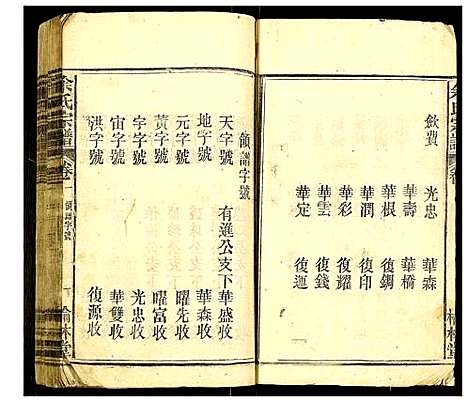 斂費
光忠 華森
華壽 華橋
華根 復鋼
華潤 復印
華彩 復耀
華雲 復錢
華定 復運
領譜字號
天字號 有進公支下華盛收
地字號 華森收
元字號 曜先收
黃字號 曜富收
宇字號 光忠收
宙字號 華雙收
洪字號 復源收
余氏宗譜 卷一 領譜字號